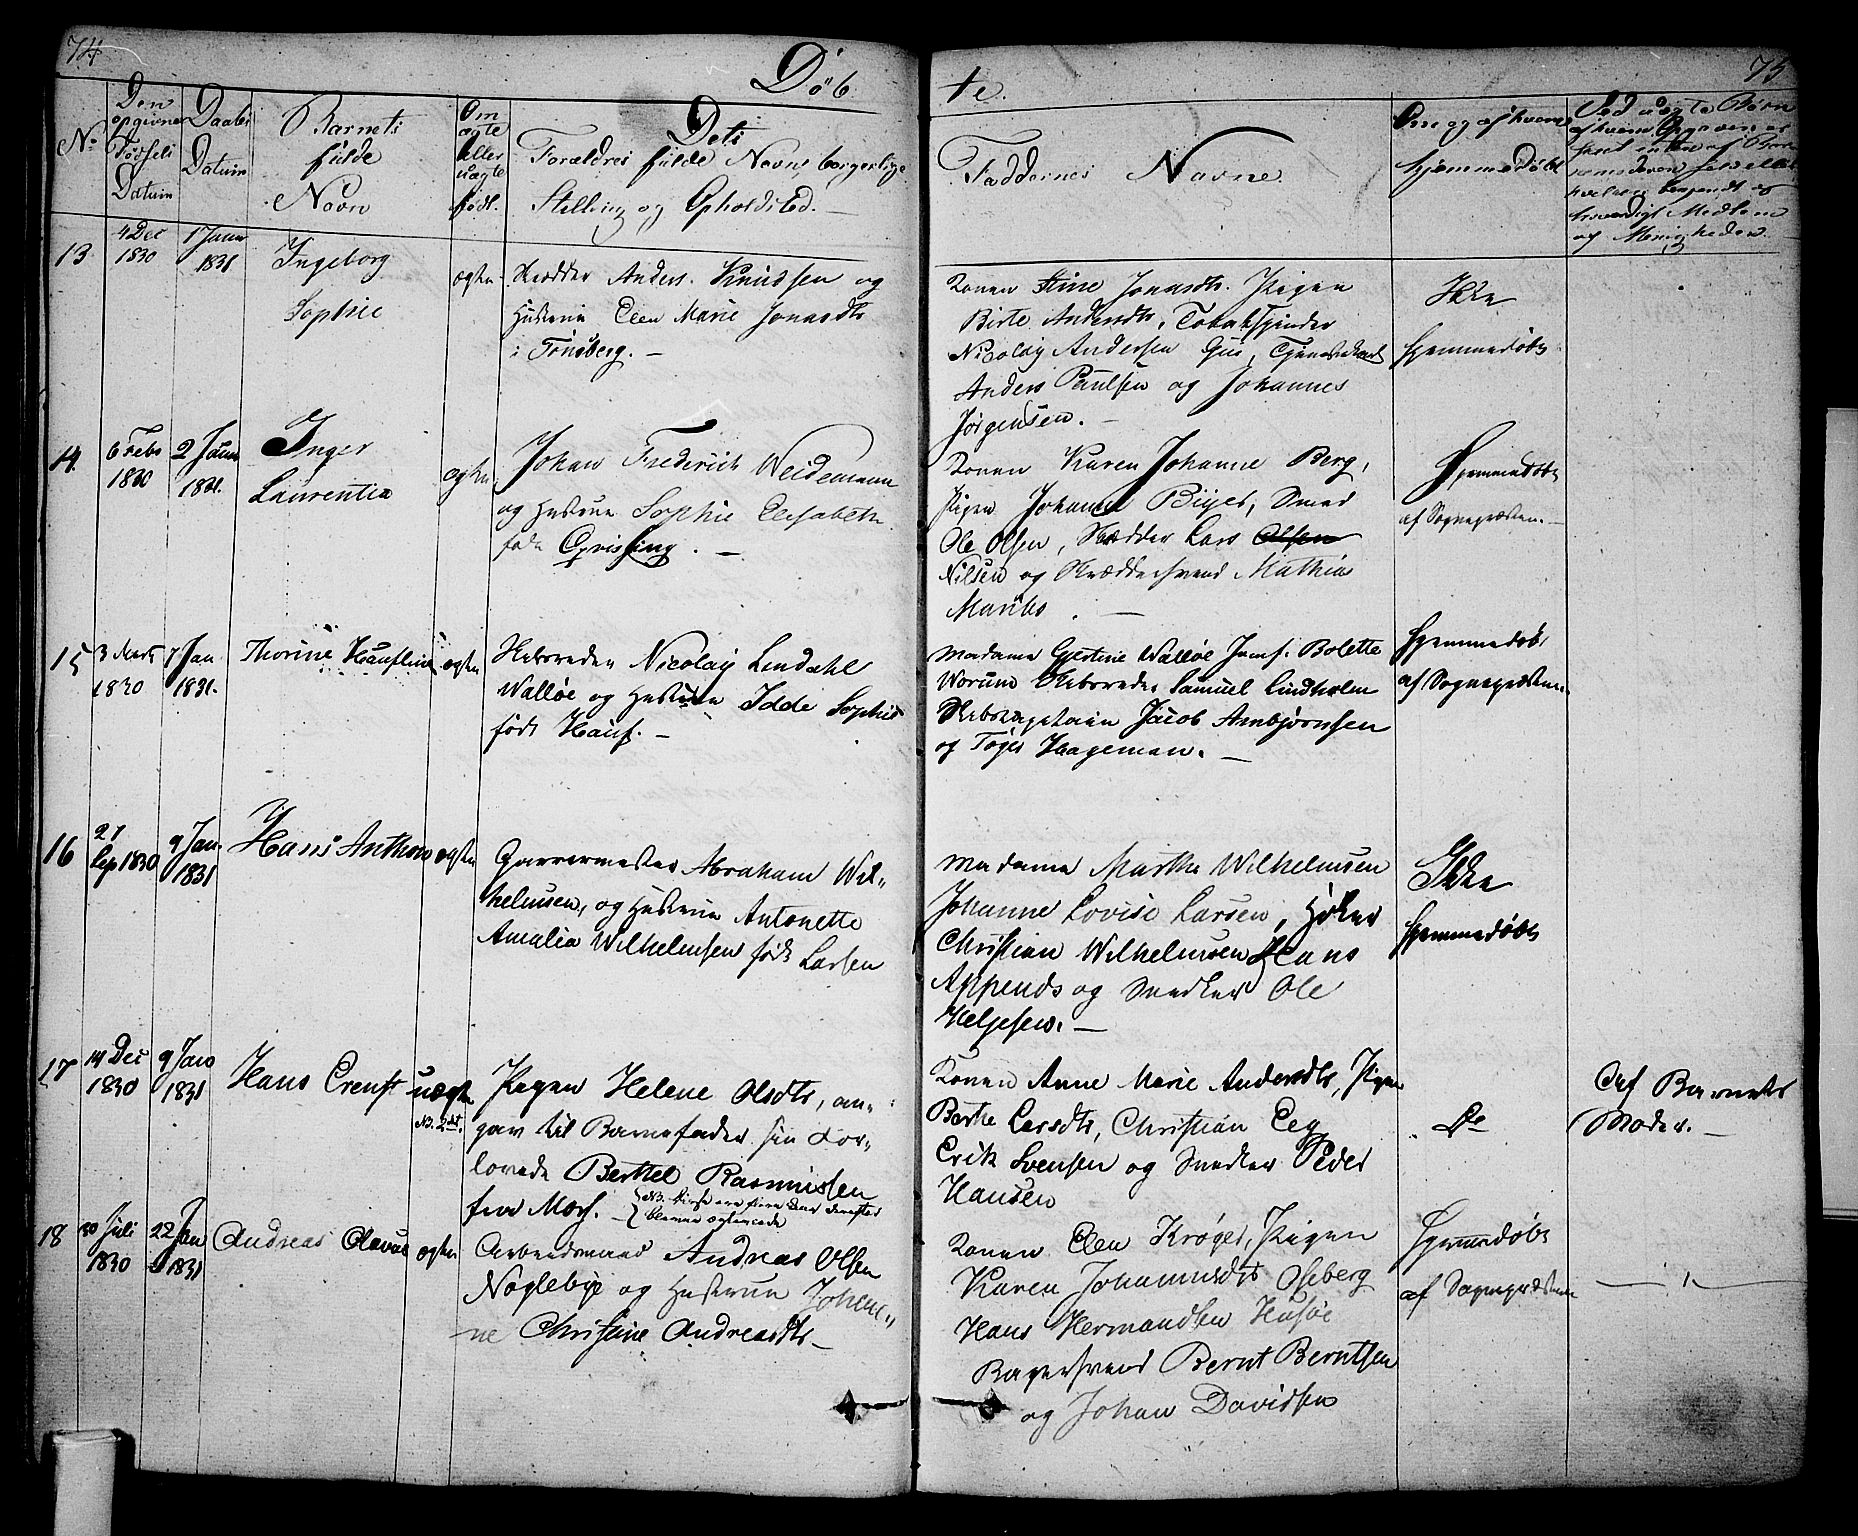 74
Døb
te.
75
No
Den
opgivne
Fødsels
Datum
Daabs
Datum
Barnets
fulde
Navn
Om
ægte
eller
uægte
født.
Dets
Forældres fulde Navne, borgerlige
Stilling og Opholdsted. —
Faddernes Navne.
Om og af hvem
hjemmedøbt
Ved uægte Børn
af hvem Opgaven er
13
4 Dec
1830
1 Janu
1831
Ingeborg
Sophie
ægte
Skrædder Anders Knudsen og
Hustrue Elen Marie Jonasdtr
i Tønsberg. —
Konen Stine Jonasdtr. Pigen
Birte Andersdtr, Tobakspinder
Nicolay Andersen Gui, Tjenestekarl
Anders Paulsen og Johannes
Jørgensen. —
Ikke
hjemmedøbt
14
6 Febr
1830
2 Janu
1831.
Inger
Laurentia
ægte
Johan Frederich Weidemann
og Hustrue Sophie Elisabeth
født Qvisling. —
Konen Karen Johanne Berg,
Pigen Johanne Biijer, Smed
Ole Olsen, Skrædder Lars Olsen
Nilsen og Skræddersvend Mathia
—
Hjemmedøbt
af Sognepræsten. —
15
3 Marts
1830
7 Jan
1831.
Thorine Haufline
ægte
Skibsreder Nicolay Lindahl
Walløe og Hustrue Idde Sophie
født Hauf. —
Madame Gjertine Walløe Jomf. Bolette
Worum Skibsreder Samuel Lindholm
Skibskapitain Jacob Ambjørnsen
og Tøger Hageman. —
Hjemmedøbt
af Sognepræsten.
16
21
Sep 1830
9 Jan.
1831
Hans Anthon
ægte
Garvermester Abraham Wil„
helmsen, og Hustrue Antonette
Amalia Wilhelmsen født Larsen
Madame Marthe Wilhelmsen
Johanne Lovise Larsen, Høker
Christian Wilhelmsen Hans
Appends og Snedker Ole
Helgesen. —
Ikke
hjemmedøbt
17
14 Dec
1830
9 Jan
1831
Hans Ernst
uægte
No. 2det.
Pigen Helene Olsdtr, an„
gav til Barnefader sin For„
lovede Berthel Rasmussen
fra Moss. —
NB. disse ere siden den derefter
blevne ægteviede
Konen Anne Marie Andersdtr, Pigen
Berthe Larsdtr, Christian Eeg
Erik Svensen og Snedker Peder
Hansen
Do
Af Barnets
Moder. —
18
30 Juli
1830
22 Jan
1831
Andreas Olavus
ægte
Arbeidsmand Andreas Olsen
Nøglebye og Hustrue Johan„
ne Christine Andreasdtr —
Konen Elen Krøger, Pigen
Karen Johannesdtr Oseberg
Hans Hermandsen Husøe
Bagersvend Bernt Berntsen
og Johan Davidsen
Hjemmedøbt
af Sognepræsten